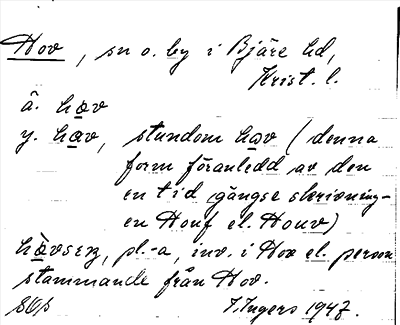 Hov, sn o. by i Bjäre hd,
Krist. l.
ä. hov
y. hav, stundom hov (denna
form föranledd av den
en tid gängse skrivning-
en Houf el. Houv)
hòvsen, pl. -a, inv. i Hov el. person
stammande från Hov.
I. Ingers 1947.